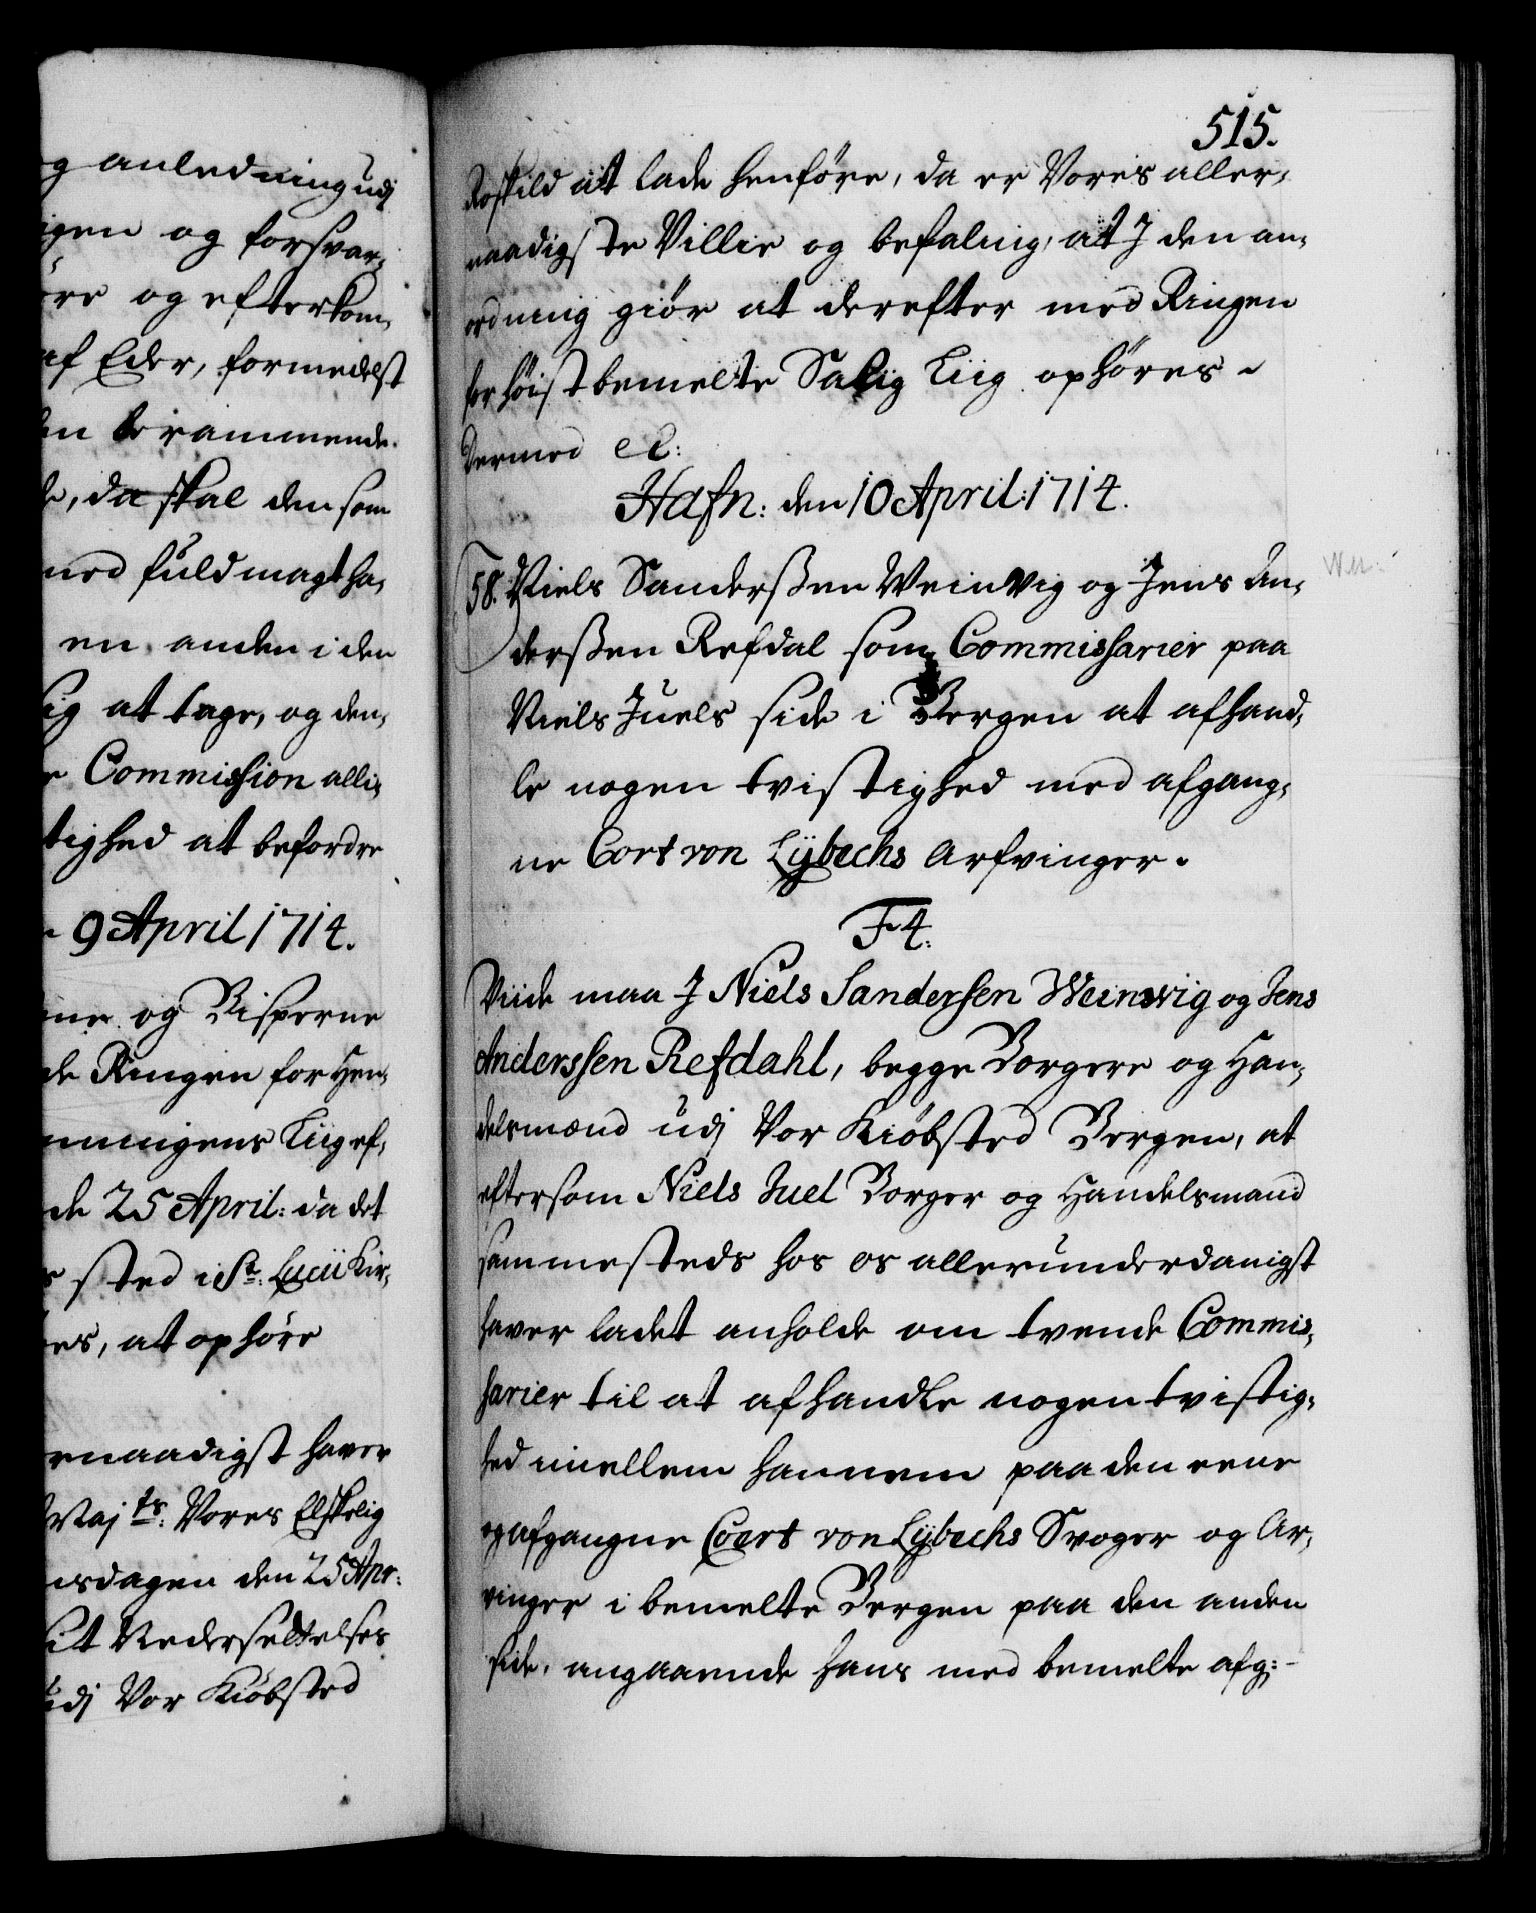 g anledning udj
igen og forsvar,
øre og efterkom,
af Eder, formedelst
en berammende
e, da skal den som
med fuldmagt ha,
en anden i den
ig at tage, og den,
e Commission alli,
tighed at befordre
9 April 1714.
ne og Bisperne
de Ringen for Hen,
ningens Liig ef,
de 25 April: da det
s sted i St: Lucii Kir,
es, at ophøre
enaadigst haver
Maj ts: Vores Elskelig
nsdagen den 25 Apr:
sit Nedersettelses
udj Vor Kiøbsted
515.
Roskild at lade henføre, da er Vores aller,
naadigste Villie og befaling, at J den an,
ordning giør at derefter med Ringen
for høistbemelte Salig Liig ophøres ~
Dermed etc:
Hafn: den 10 April: 1714.
58. Niels Sanderßen Weinvig og Jens An,
derßen Refdal som Commissarier paa
Niels Juels side i Bergen at afhand,
le nogen tvistighed med afgang,
ne Cort von Lÿbechs Arfvinger.
F. 4.
Viide maa J Niels Sandersen Weinwig og Jens
Anderssen Refdahl, begge Borgere og Han,
delsmænd udj Vor Kiøbsted Bergen, at
eftersom Niels Juel Borger og Handelsmand
sammesteds hos os allerunderdanigst
haver ladet anholde om tvende Commis,
sarier til at afhandle nogen tvistig,
hed imellem hannem paa den eene
og afgangne Coert von Lÿbechs Svoger og Ar,
vinger i bemelte Bergen paa den anden
side, angaaende hans med bemelte afg: -